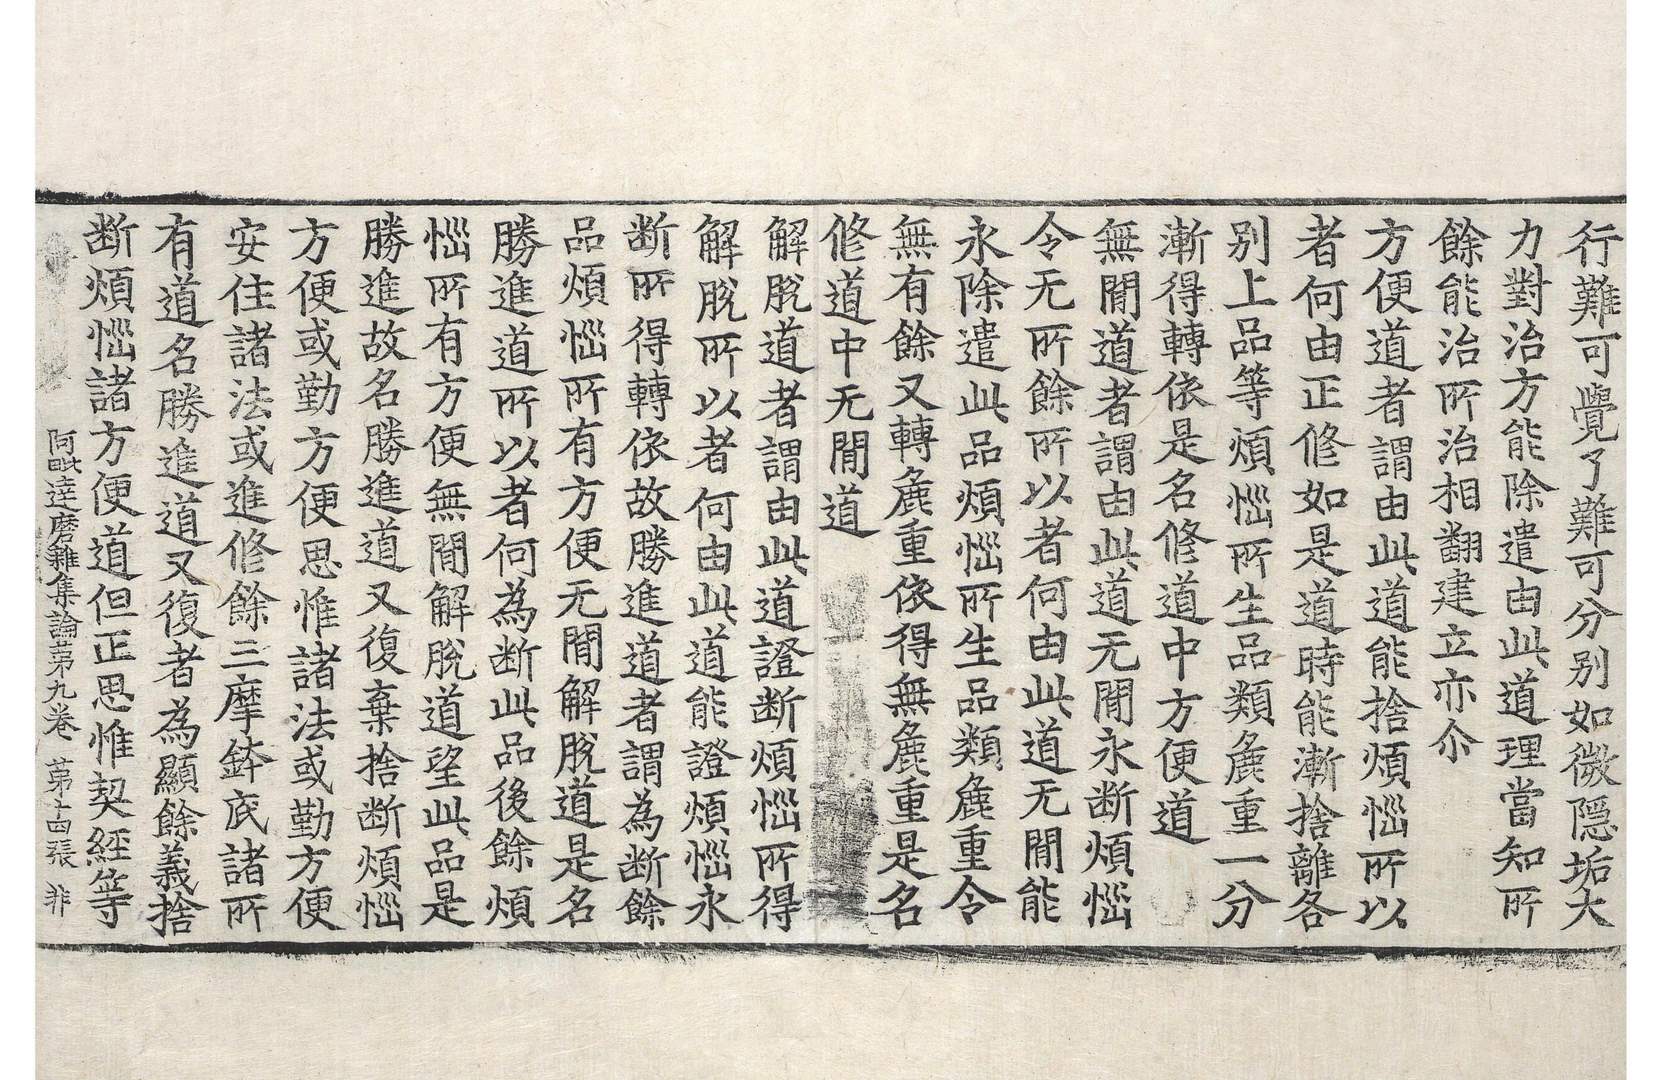 行難可覺了難可分别如微隠垢大
力對治方能除遣由此道理當知所
餘能治所治相翻建立亦尒
方便道者謂由此道能捨煩惱所以
者何由正修如是道時能漸捨離各
别上品等煩惱所生品類麁重一分
漸得轉依是名修道中方便道
無間道者謂由此道无間永断煩惱
令无所餘所以者何由此道无間能
永除遣此品煩惱所生品類麁重令
無有餘又轉麁重依得無麁重是名
修道中无間道
解脫道者謂由此道證断煩惱所得
解脫所以者何由此道能證煩惱永
断所得轉依故勝進道者謂為断餘
品煩惱所有方便无間解脫道是名
勝進道所以者何為断此品後餘煩
惱所有方便無間解脫道望此品是
勝進故名勝進道又復棄捨断煩惱
方便或勤方便思惟諸法或勤方便
安住諸法或進修餘三摩鉢底諸所
有道名勝進道又復者為顯餘義捨
断煩惱諸方便道但正思惟契經等
阿毗達磨雜集論苐九卷 苐十四張 非